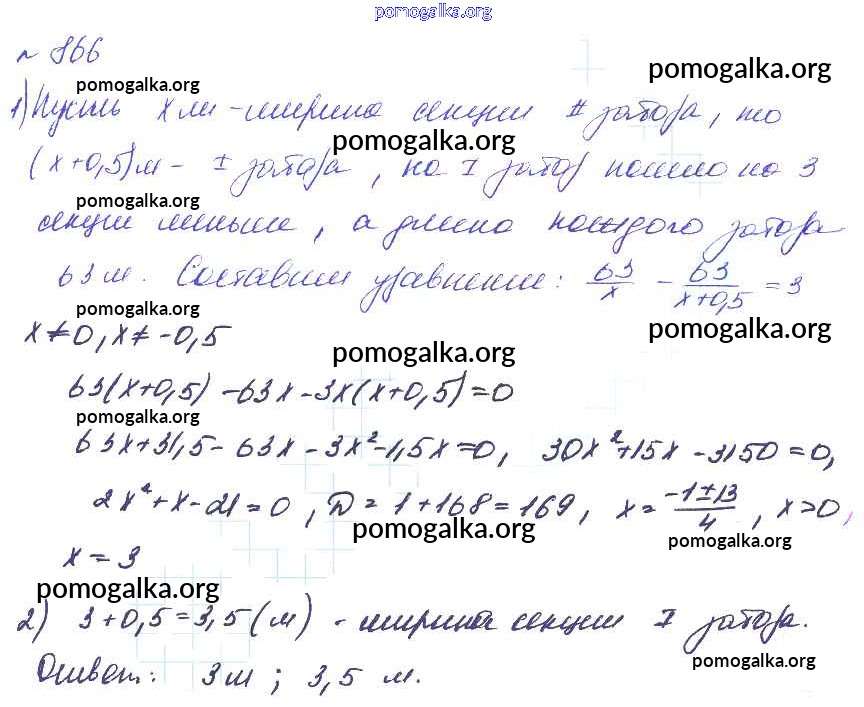 pomogalka.org
№ 866
pomogalka.org
pomogalka.org
1) Пусть x м - ширина секции II забора, то
pomogalka.org
(x+0,5) м - I забора, на I забор пошло на 3
секции меньше, а длина каждого забора
63 м. Составим уравнение: 63/x - 63/(x+0,5) = 3
pomogalka.org
x≠0, x≠-0,5
pomogalka.org
pomogalka.org
63(x+0,5) -63x -3x(x+0,5)=0
pomogalka.org
63x+31,5-63x-3x²-1,5x=0, 30x²+15x-3150=0,
2x²+x-21=0, D=1+168=169, x=(-1±13)/4, x>0,
pomogalka.org
pomogalka.org
x=3
pomogalka.org
2) 3+0,5=3,5(м) - ширина секции I забора.
pomogalka.org
Ответ: 3м; 3,5 м.